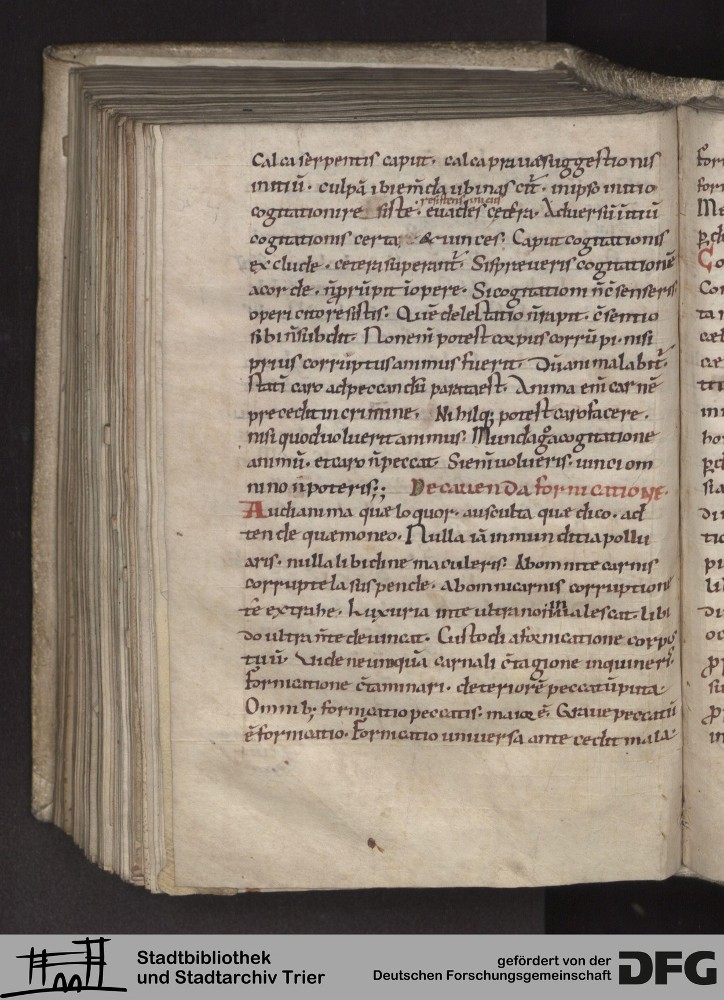 Calca serpentis caput. calca pravæ suggestionis
initiū. culpā ibi em̄da ubi nascit̄. in ipso initio
cogitationi re siste. evades cetera. Adversū initiū
resistens initiis
cogitationis certa & vinces. Caput cogitationis
exclude. cetera superant̄. Si spreveris cogitationē
a corde. n̄ prūpit ī opere. Si cogitationi n̄ c̄senseris
operi cito resistis. Quē delectatio n̄ rapit. c̄sentio
sibi n̄ subdit. Non eni potest corpus corrūpi. nisi
prius corruptus animus fuerit. Dū anima labit̄.
statī caro ad peccandū parata est. Anima eni carnē
precedit in crimine. Nihilq; potest caro facere.
nisi quod voluerit animus. Munda g̊ a cogitatione
animū. et caro n̄ peccat. Si eni volueris. vinci om
nino n̄ poteris; De cavenda fornicatione.
Audi anima quæ loquor. ausculta quæ dico. ad
tende quæ moneo. Nulla iā inmunditia pollu
aris. nulla libidine maculeris. Abom te carnis
corruptela suspende. Ab omni carnis corruption
te extrahe. Luxuria in te ultra non alescat. libi
do ultra n̄ te devincat. Custodi a fornicatione corpꝰ
tuū. Vide ne umquā carnali c̄tagione inquineris.
Fornicatione c̄taminari. deteriorē peccatū puta.
Omnib; fornicatio peccatis. maior ē. Grave peccatū
ē fornicatio. Fornicatio universa antecedit mala
Stadtbibliothek
und Stadtarchiv Trier
gefördert von der
Deutschen Forschungsgemeinschaft
DFG